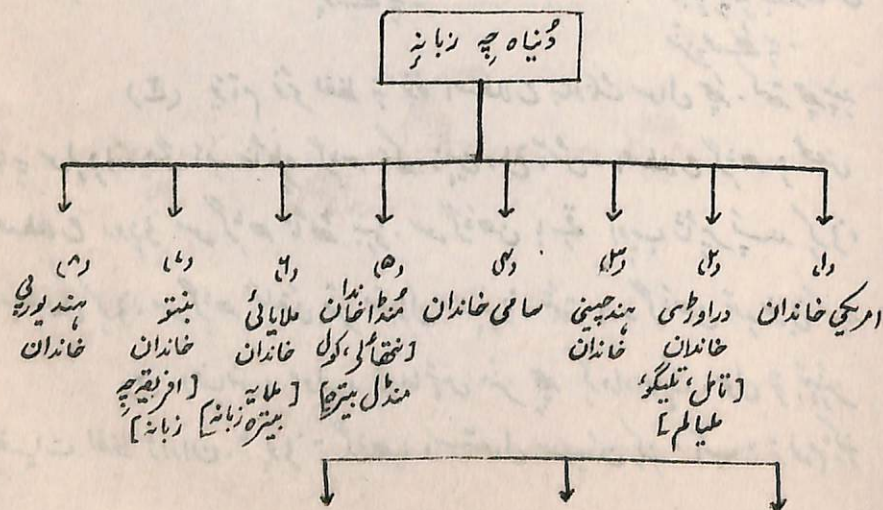 دُنیاہ چہِ زبانہٕ
(۱)
امریکی خاندان
(۲)
دراوڑی
خاندان
[تامل، تیلیگو،
ملیالم]
(۳)
ہندچینی
خاندان
(۴)
سامی خاندان
(۵)
مُنڈا خاندان
[سنتھالی، کول
منڈل بیترہِ]
(۶)
ملایائی
خاندان
[ملایہ
بیترہ زبانہٕ]
(۷)
بنتو
خاندان
[افریقہٕ چہِ
زبانہٕ]
(۸)
ہندیورپی
خاندان